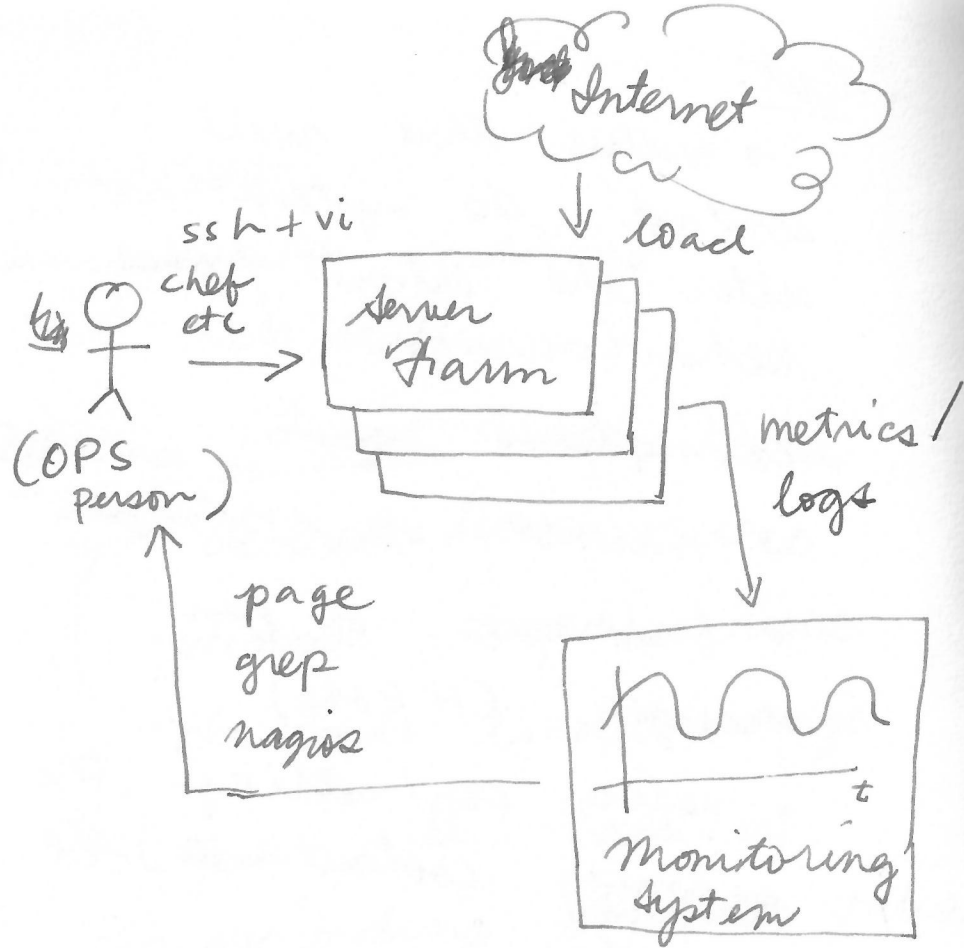 Internet
load
ssh + vi
chef
etc
Server
Farm
(OPS
person)
metrics /
logs
page
grep
nagios
t
Monitoring
System